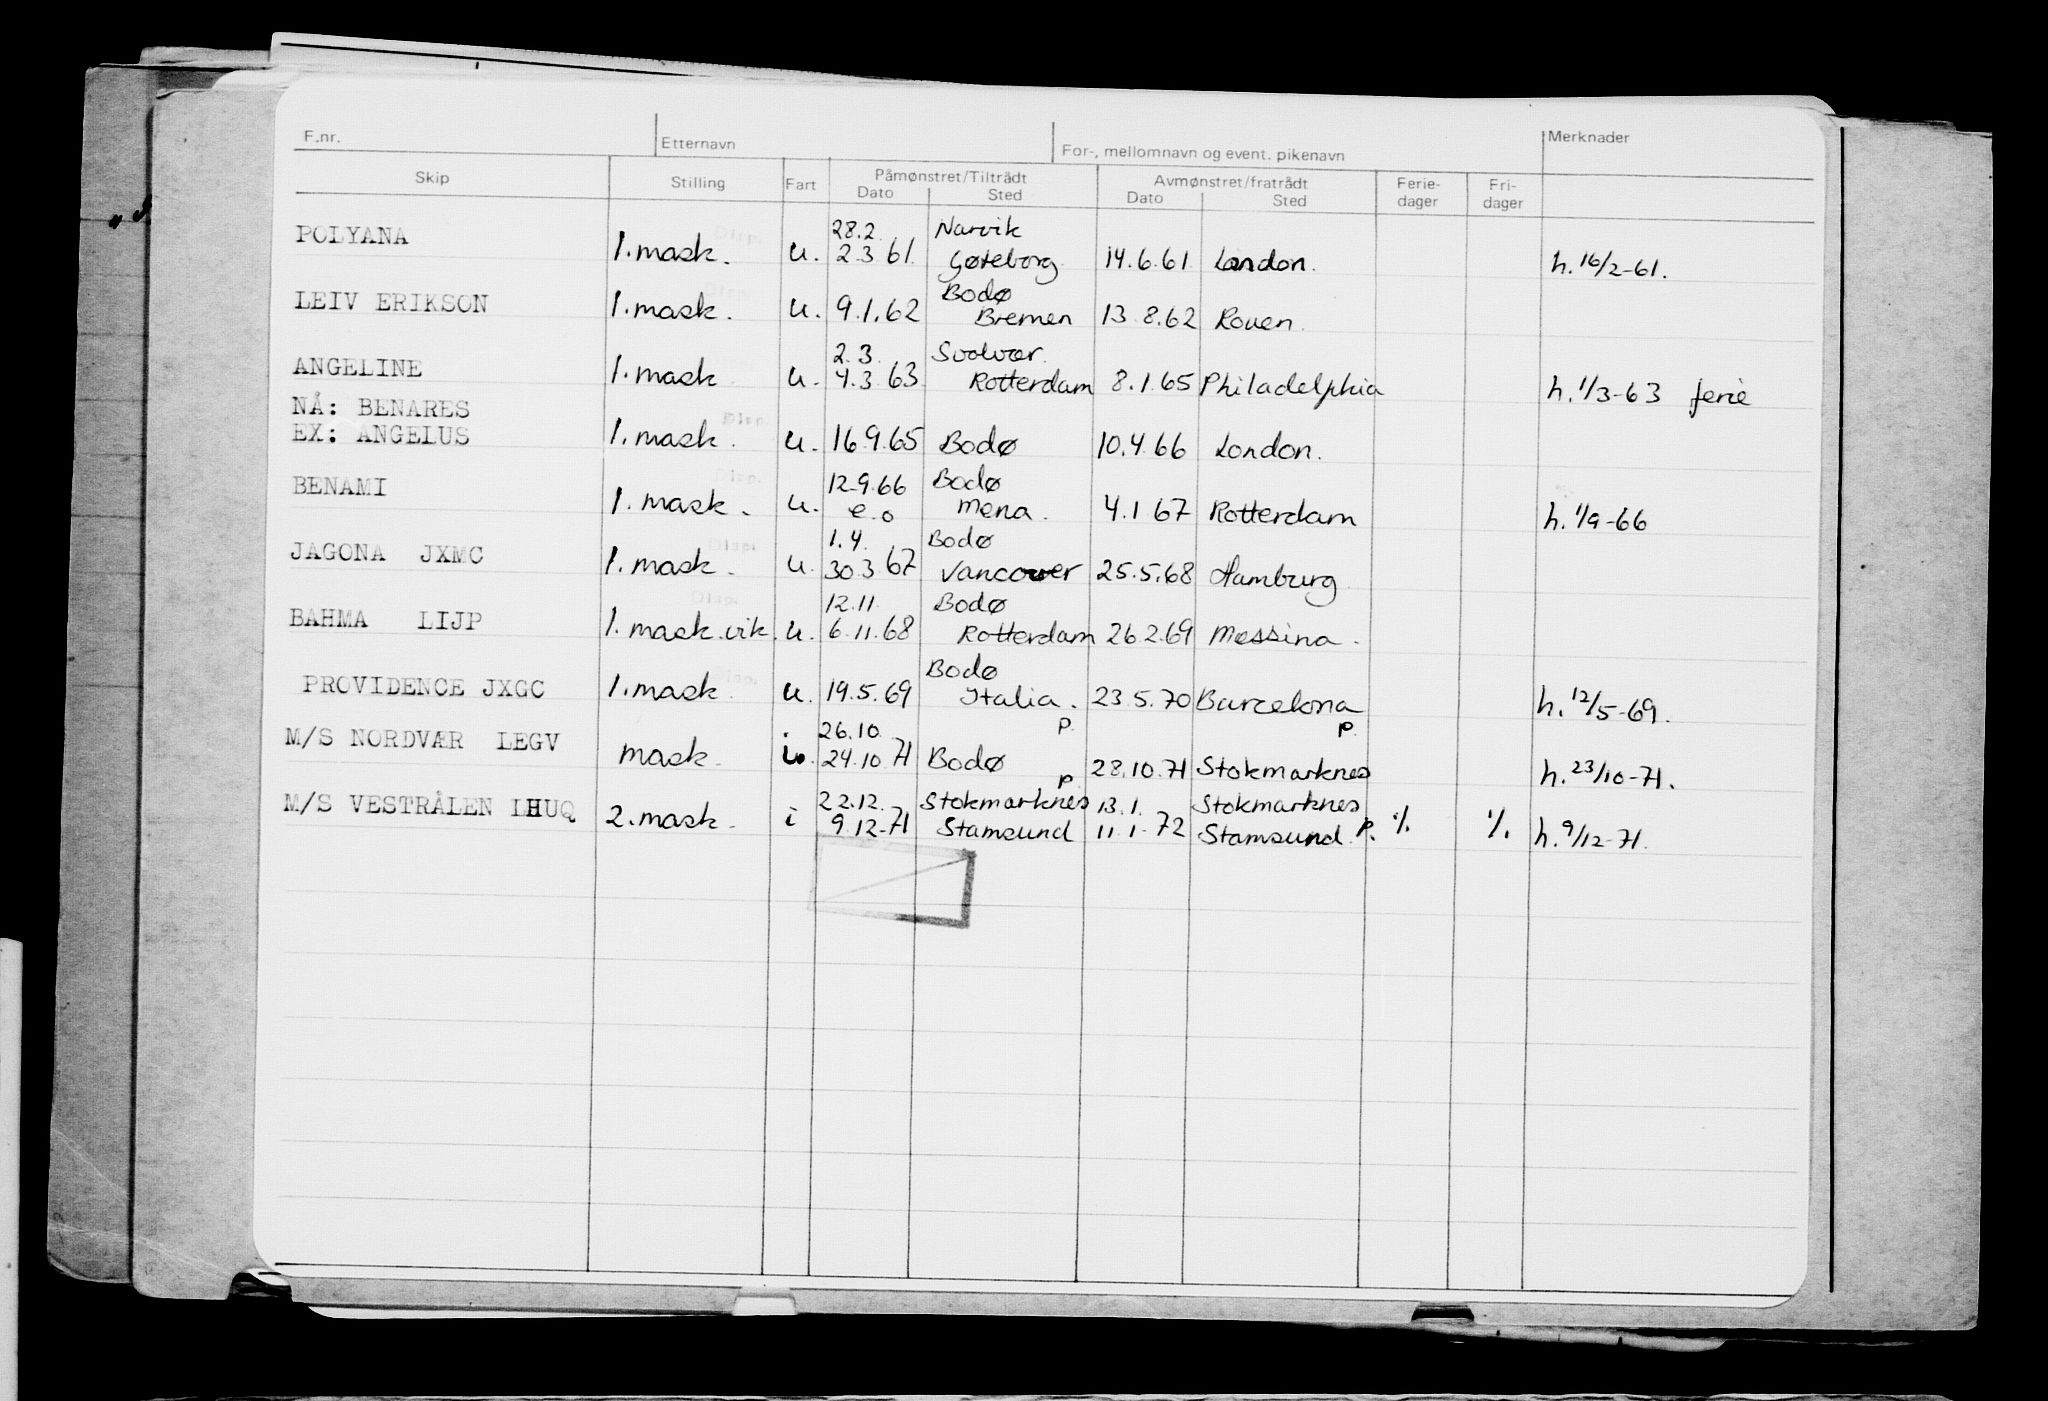 F.nr. Etternavn For-, mellomnavn og event. pikenavn Merknader
Skip Stilling Fart Påmønstret/Tiltrådt Avmønstret/fratrådt Ferie- Fri-
Dato Sted Dato Sted dager dager
28.2. Narvik
POLYANA 1. mask. u. 2.3 61. Gøteborg 14.6.61 London. h. 16/2-61.
Bodø
LEIV ERIKSON 1. mask. u. 9.1.62 Bremen 13.8.62 Rouen.
2.3. Svolvær.
ANGELINE 1. mask u. 4.3 63. Rotterdam 8.1.65 Philadelphia h. 1/3-63 ferie
NÅ: BENARES Disp.
EX: ANGELUS 1. mask. u. 16.9.65 Bodø 10.4.66 London.
Disp.
12.9.66 Bodø
BENAMI 1. mask. u. e.o Mena. 4.1 67 Rotterdam h. 1/9-66
Disp. 1.4. Bodø
JAGONA JXMC 1. mask. u. 30.3 67 Vancouver 25.5.68 Hamburg
Disp. 12.11. Bodø
BAHMA LIJP 1. mask.vik. u. 6.11.68 Rotterdam 26.2.69 Messina.
Disp. Bodø
PROVIDENCE JXGC 1. mask. u. 19.5.69 Italia. 23.5.70 Barcelona h. 12/5-69.
26.10. p. p.
M/S NORDVÆR LEGV mask. i. 24.10.71 Bodø 28.10.71 Stokmarknes h. 23/10-71.
p
22.12. Stokmarknes 13.1. Stokmarknes
M/S VESTRÅLEN LHUQ 2. mask. i 9.12-71 Stamsund 11.1.72 Stamsund. p. % % h. 9/12-71.